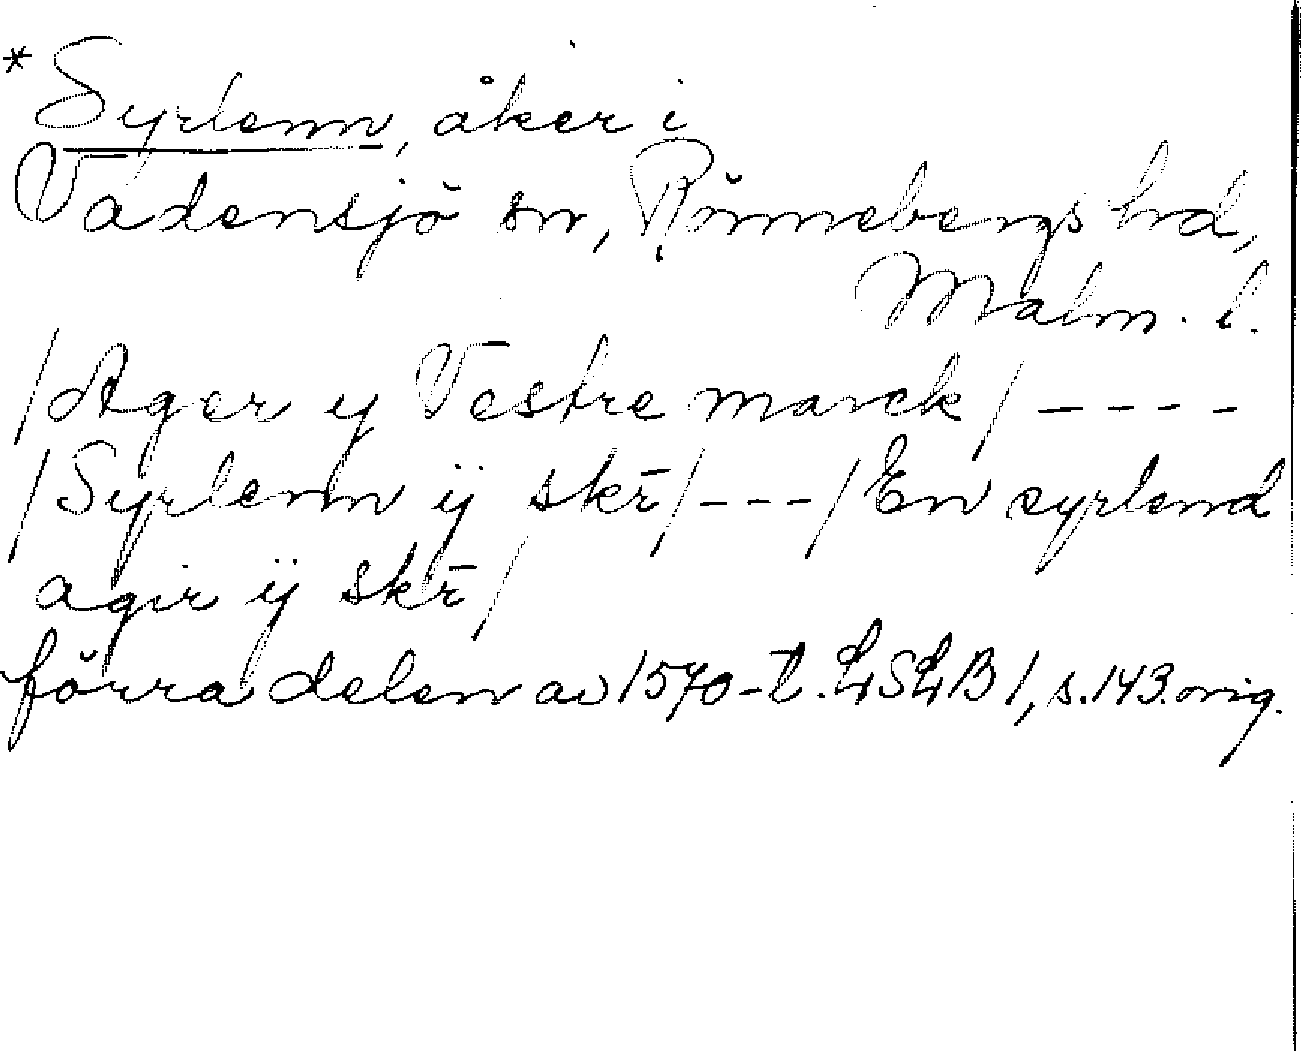 *Syrlenn, åker i
Vadensjö sn, Rönnebergs hd,
Malm. l.
/Ager y Vestre marck/ ----
/Syrlenn ÿ skr̄/ --- /En syrlend
agir ÿ skr̄/
förra delen av 1570-t. LSLB 1, s. 143. orig.